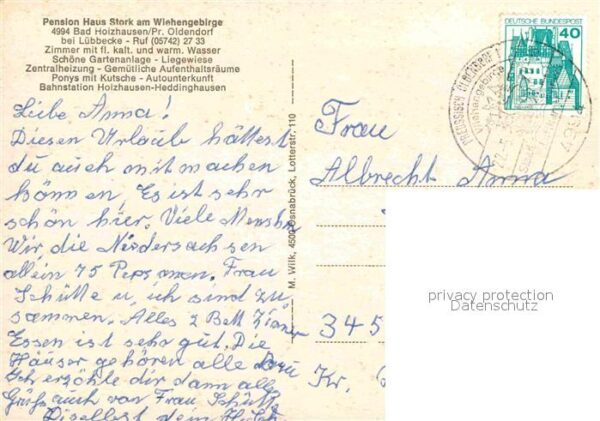 Pension Haus Stork am Wiehengebirge
4994 Bad Holzhausen/Pr. Oldendorf
bei Lübbecke - Ruf (05742) 27 33
Zimmer mit fl. kalt. und warm. Wasser
Schöne Gartenanlage - Liegewiese
Zentralheizung - Gemütliche Aufenthaltsräume
Ponys mit Kutsche - Autounterkunft
Bahnstation Holzhausen-Heddinghausen
Liebe Anna!
Diesen Urlaub hättest
du auch mit machen
können, Es ist sehr
schön hier. Viele Mensche
Wir die Niedersachsen
allein 75 Personen. Frau
Schütte u, ich sind zu
sammen. Alles 2 Bett Zimer
Essen ist sehr gut. Die
Häuser gehören alle
Ich erzähle dir dann alles
Grüße auch von Frau Schütte
dein
M. Wilk, 4500 Osnabrück, Lotterstr. 110
DEUTSCHE BUNDESPOST
40
PREUSSISCH OLDENDORF
Wiehengebirge
4994
Frau
Albrecht Anna
345
Kr.
privacy protection
Datenschutz